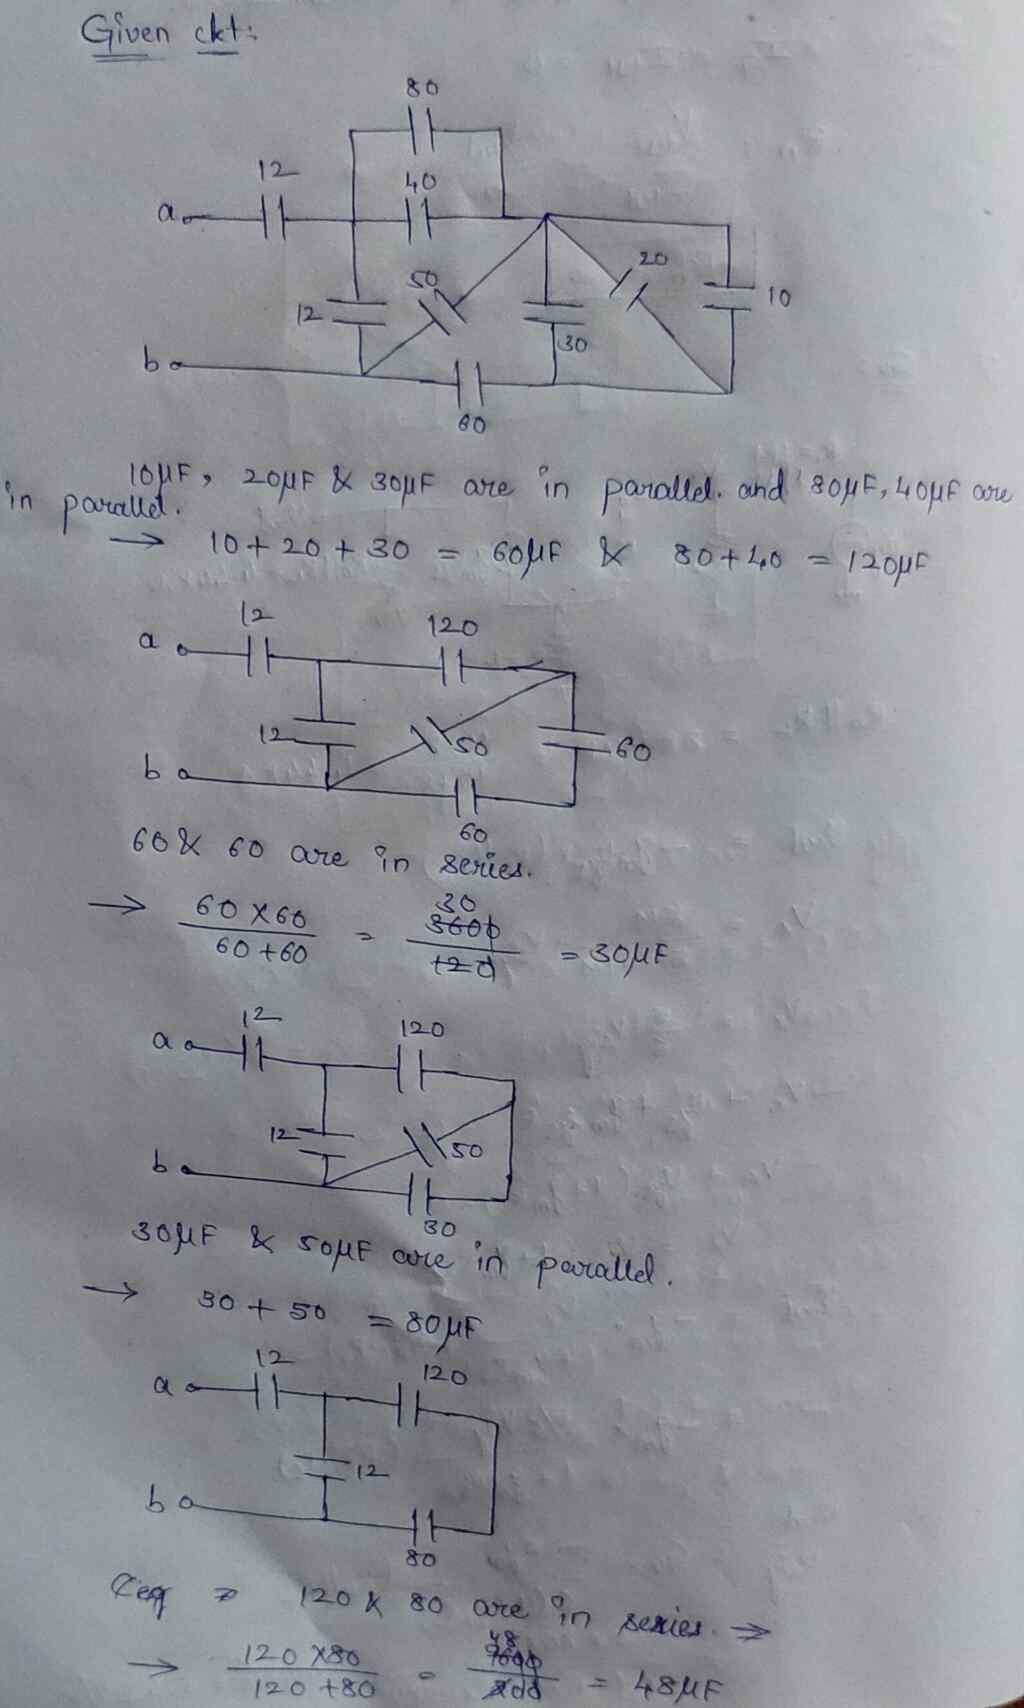 Given ckt:
80
12
40
a
50
20
10
12
30
b
60
10μF, 20μF & 30μF are in parallel. and 80μF, 40μF are
in parallel.
→ 10 + 20 + 30 = 60μF & 80 + 40 = 120μF
12
120
a
12
50
60
b
60
60 & 60 are in series.
→ 60 × 60 / 60 + 60 = 3600 / 120 30 = 30μF
12
120
a
12
50
b
30
30μF & 50μF are in parallel.
→ 30 + 50 = 80μF
12
120
a
12
b
80
Ceq ⇒ 120 & 80 are in series. ⇒
→ 120 × 80 / 120 + 80 = 9600 / 200 48 = 48μF